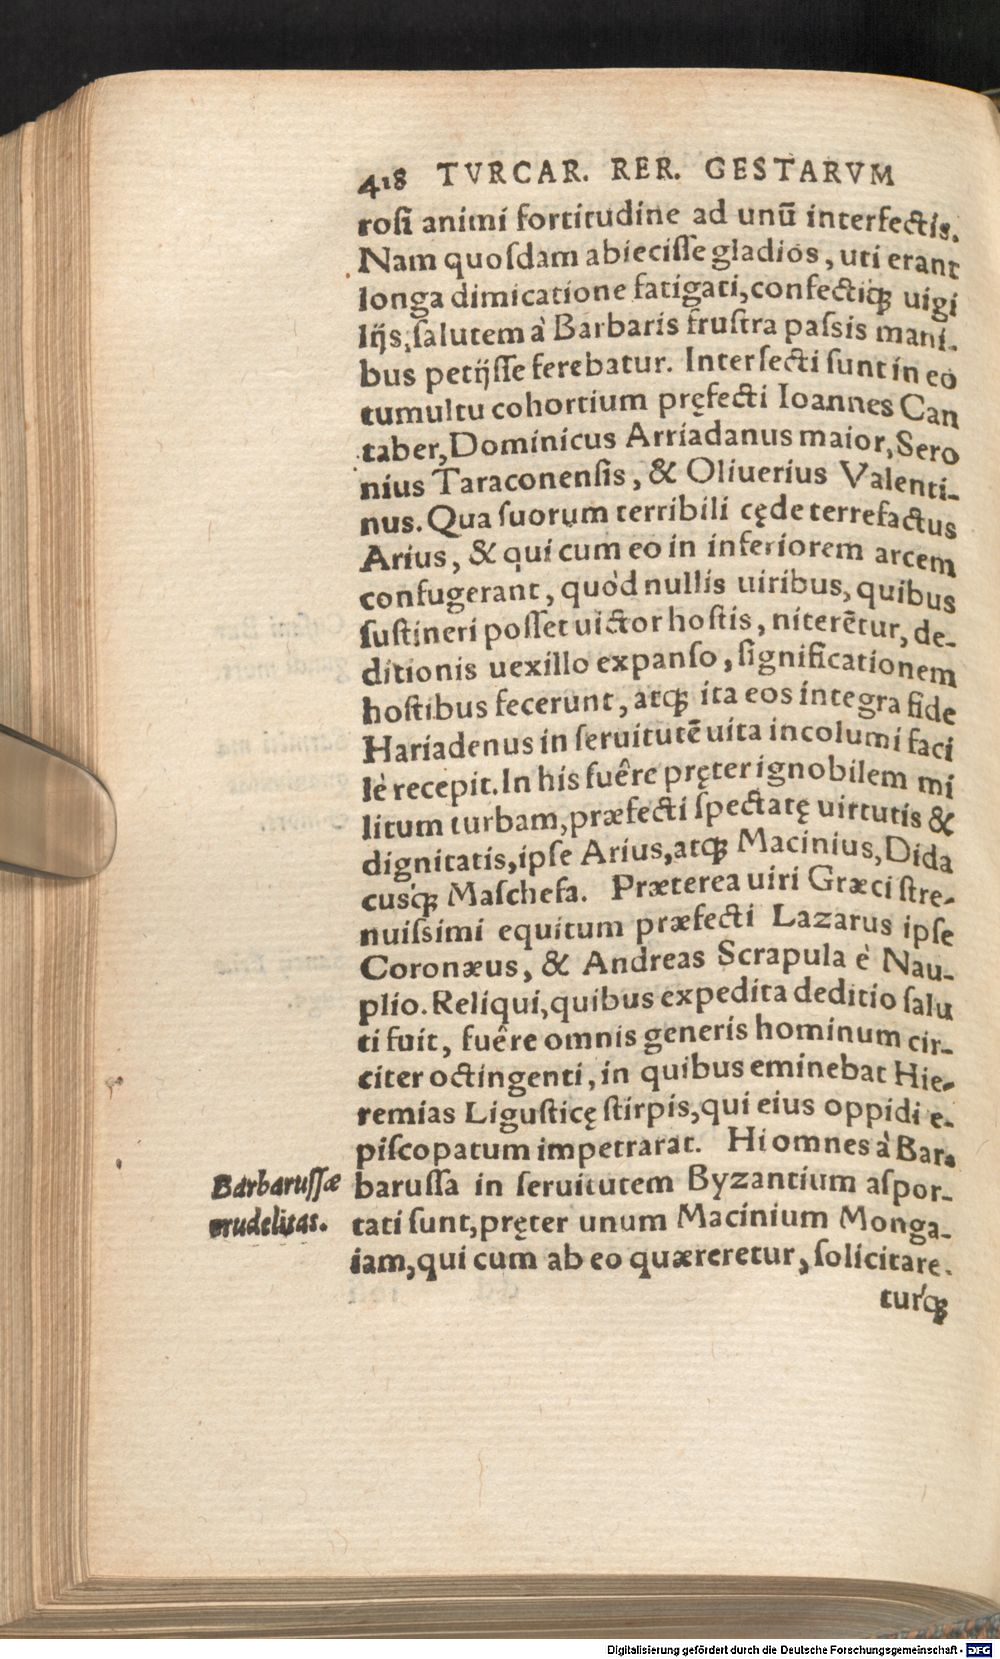 418 TVRCAR. RER. GESTARVM
rosi animi fortitudine ad unũ interfectis.
Nam quosdam abiecisse gladios, uti erant
longa dimicatione fatigati, confectiq́ꝫ uigi
lijs, salutem à Barbaris frustra passis mani-
bus petijsse ferebatur. Interfecti sunt in eo
tumultu cohortium pręfecti Ioannes Can
taber, Dominicus Arriadanus maior, Sero
nius Taraconensis, & Oliuerius Valenti-
nus. Qua suorum terribili cęde terrefactus
Arius, & qui cum eo in inferiorem arcem
confugerant, quòd nullis uiribus, quibus
sustineri posset uictor hostis, niterẽtur, de-
ditionis uexillo expanso, significationem
hostibus fecerunt, atqꝫ ita eos integra fide
Hariadenus in seruitutẽ uita incolumi faci
lè recepit. In his fuêre pręter ignobilem mi
litum turbam, præfecti spectatę uirtutis &
dignitatis, ipse Arius, atqꝫ Macinius, Dida
cusq́ꝫ Maschefa. Præterea uiri Græci stre-
nuissimi equitum præfecti Lazarus ipse
Coronæus, & Andreas Scrapula è Nau-
plio. Reliqui, quibus expedita deditio salu
ti fuit, fuêre omnis generis hominum cir-
citer octingenti, in quibus eminebat Hie-
remias Ligusticę stirpis, qui eius oppidi e-
piscopatum impetrarat. Hi omnes à Bar-
Barbarussæ
crudelitas.
barussa in seruitutem Byzantium aspor-
tati sunt, pręter unum Macinium Monga-
iam, qui cum ab eo quæreretur, solicitare-
turq́ꝫ
Digitalisierung gefördert durch die Deutsche Forschungsgemeinschaft - DFG